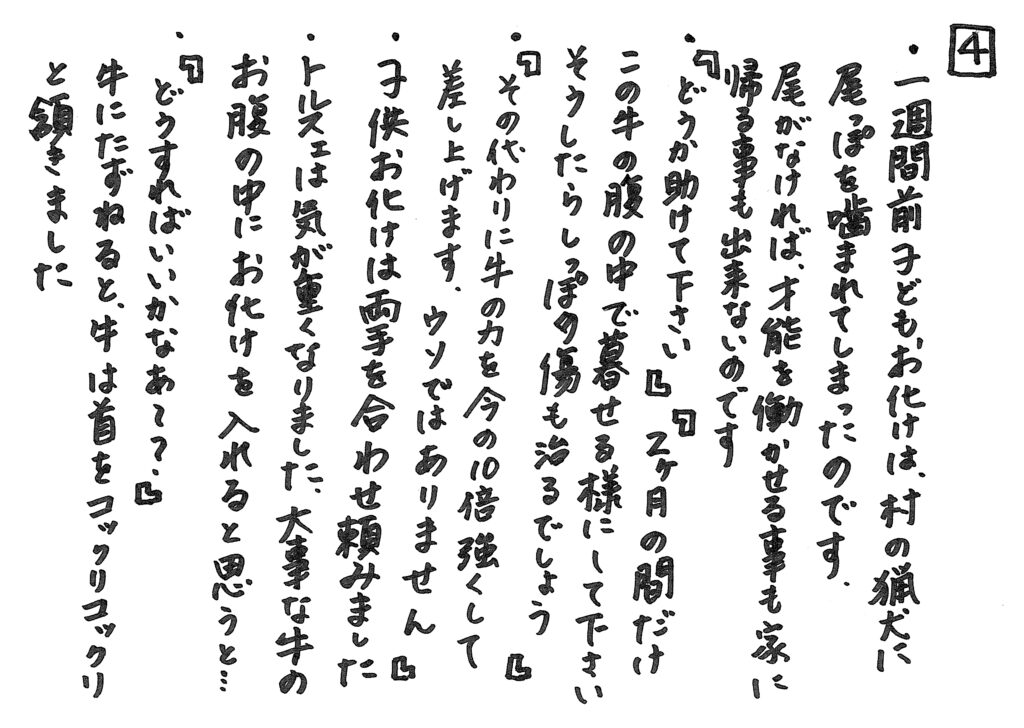 4
・一週間前子どもお化けは、村の猟犬に
尾っぽを噛まれてしまったのです.
尾がなければ、才能を働かせる事も家に
帰る事も出来ないのです
・『どうか助けて下さい』『2ヶ月の間だけ
この牛の腹の中で暮せる様にして下さい
そうしたらしっぽの傷も治るでしょう』
・『その代わりに牛の力を今の10倍強くして
差し上げます. ウソではありません』
・子供お化けは両手を合わせ頼みました
・トルスェは気が重くなりました、大事な牛の
お腹の中にお化けを入れると思うと…
・『どうすればいいかなあ~?.』
牛にたずねると、牛は首をコックリコックリ
と頷きました